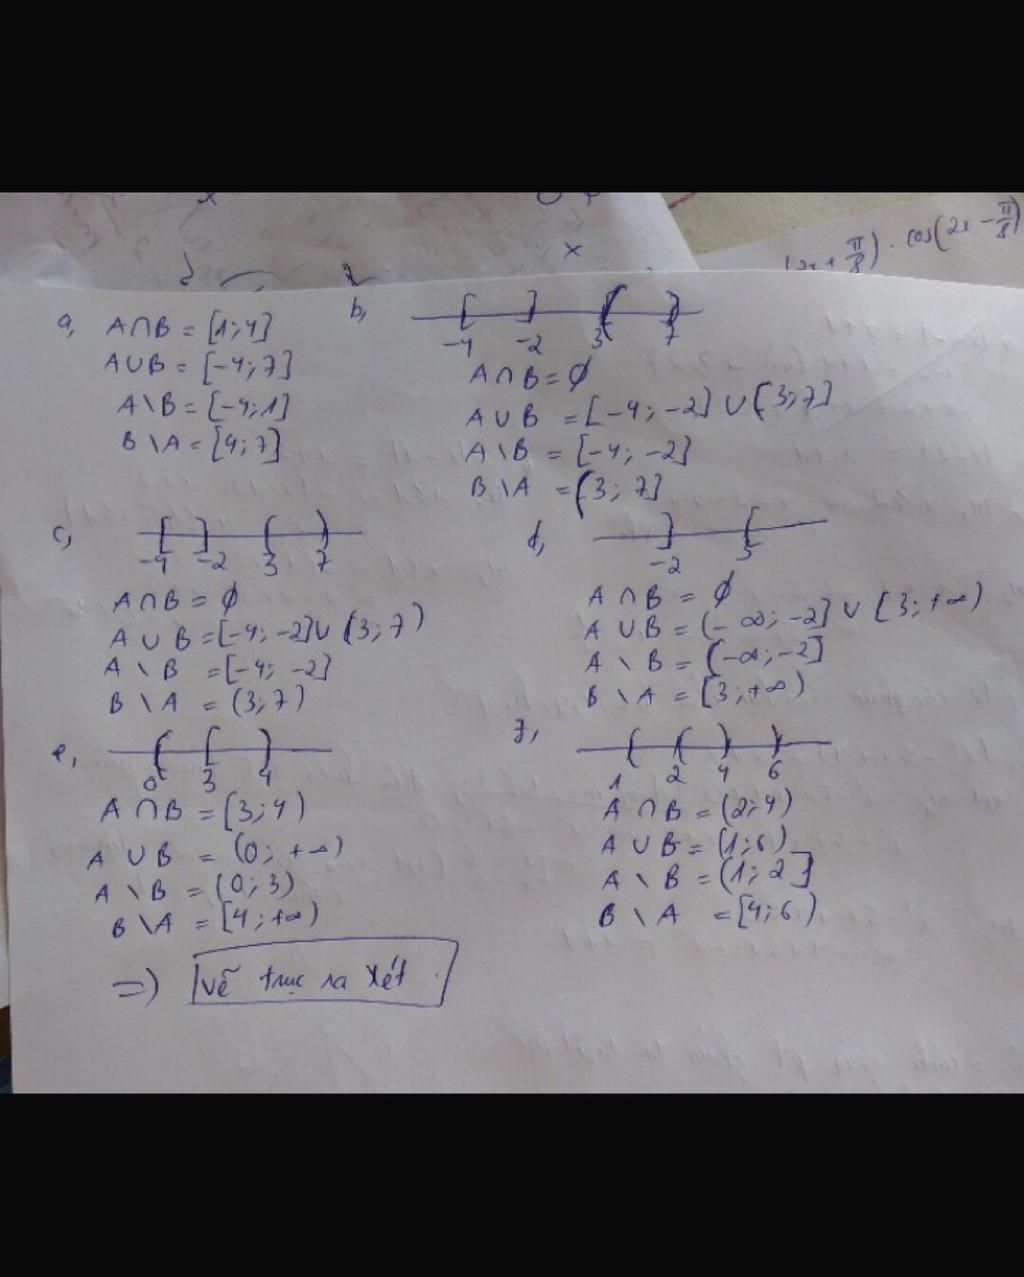 x
+ π/8) . cos(2x - π/8)
a, A∩B = [1;4]
A∪B = [-4;7]
A\B = [-4;1]
B\A = [4;7]
b,
-4 -2 3 7
A∩B = ∅
A∪B = [-4;-2] ∪ (3;7]
A\B = [-4;-2]
B\A = (3;7]
c,
-4 -2 3 7
A∩B = ∅
A∪B = [-4;-2] ∪ (3;7)
A\B = [-4;-2]
B\A = (3;7)
d,
-2 3
A∩B = ∅
A∪B = (-∞;-2] ∪ [3;+∞)
A\B = (-∞;-2]
B\A = [3;+∞)
e,
0 3 4
A∩B = [3;4)
A∪B = (0;+∞)
A\B = (0;3)
B\A = [4;+∞)
f,
1 2 4 6
A∩B = (2;4)
A∪B = (1;6)
A\B = (1;2]
B\A = [4;6)
=) vẽ trục ra xét.